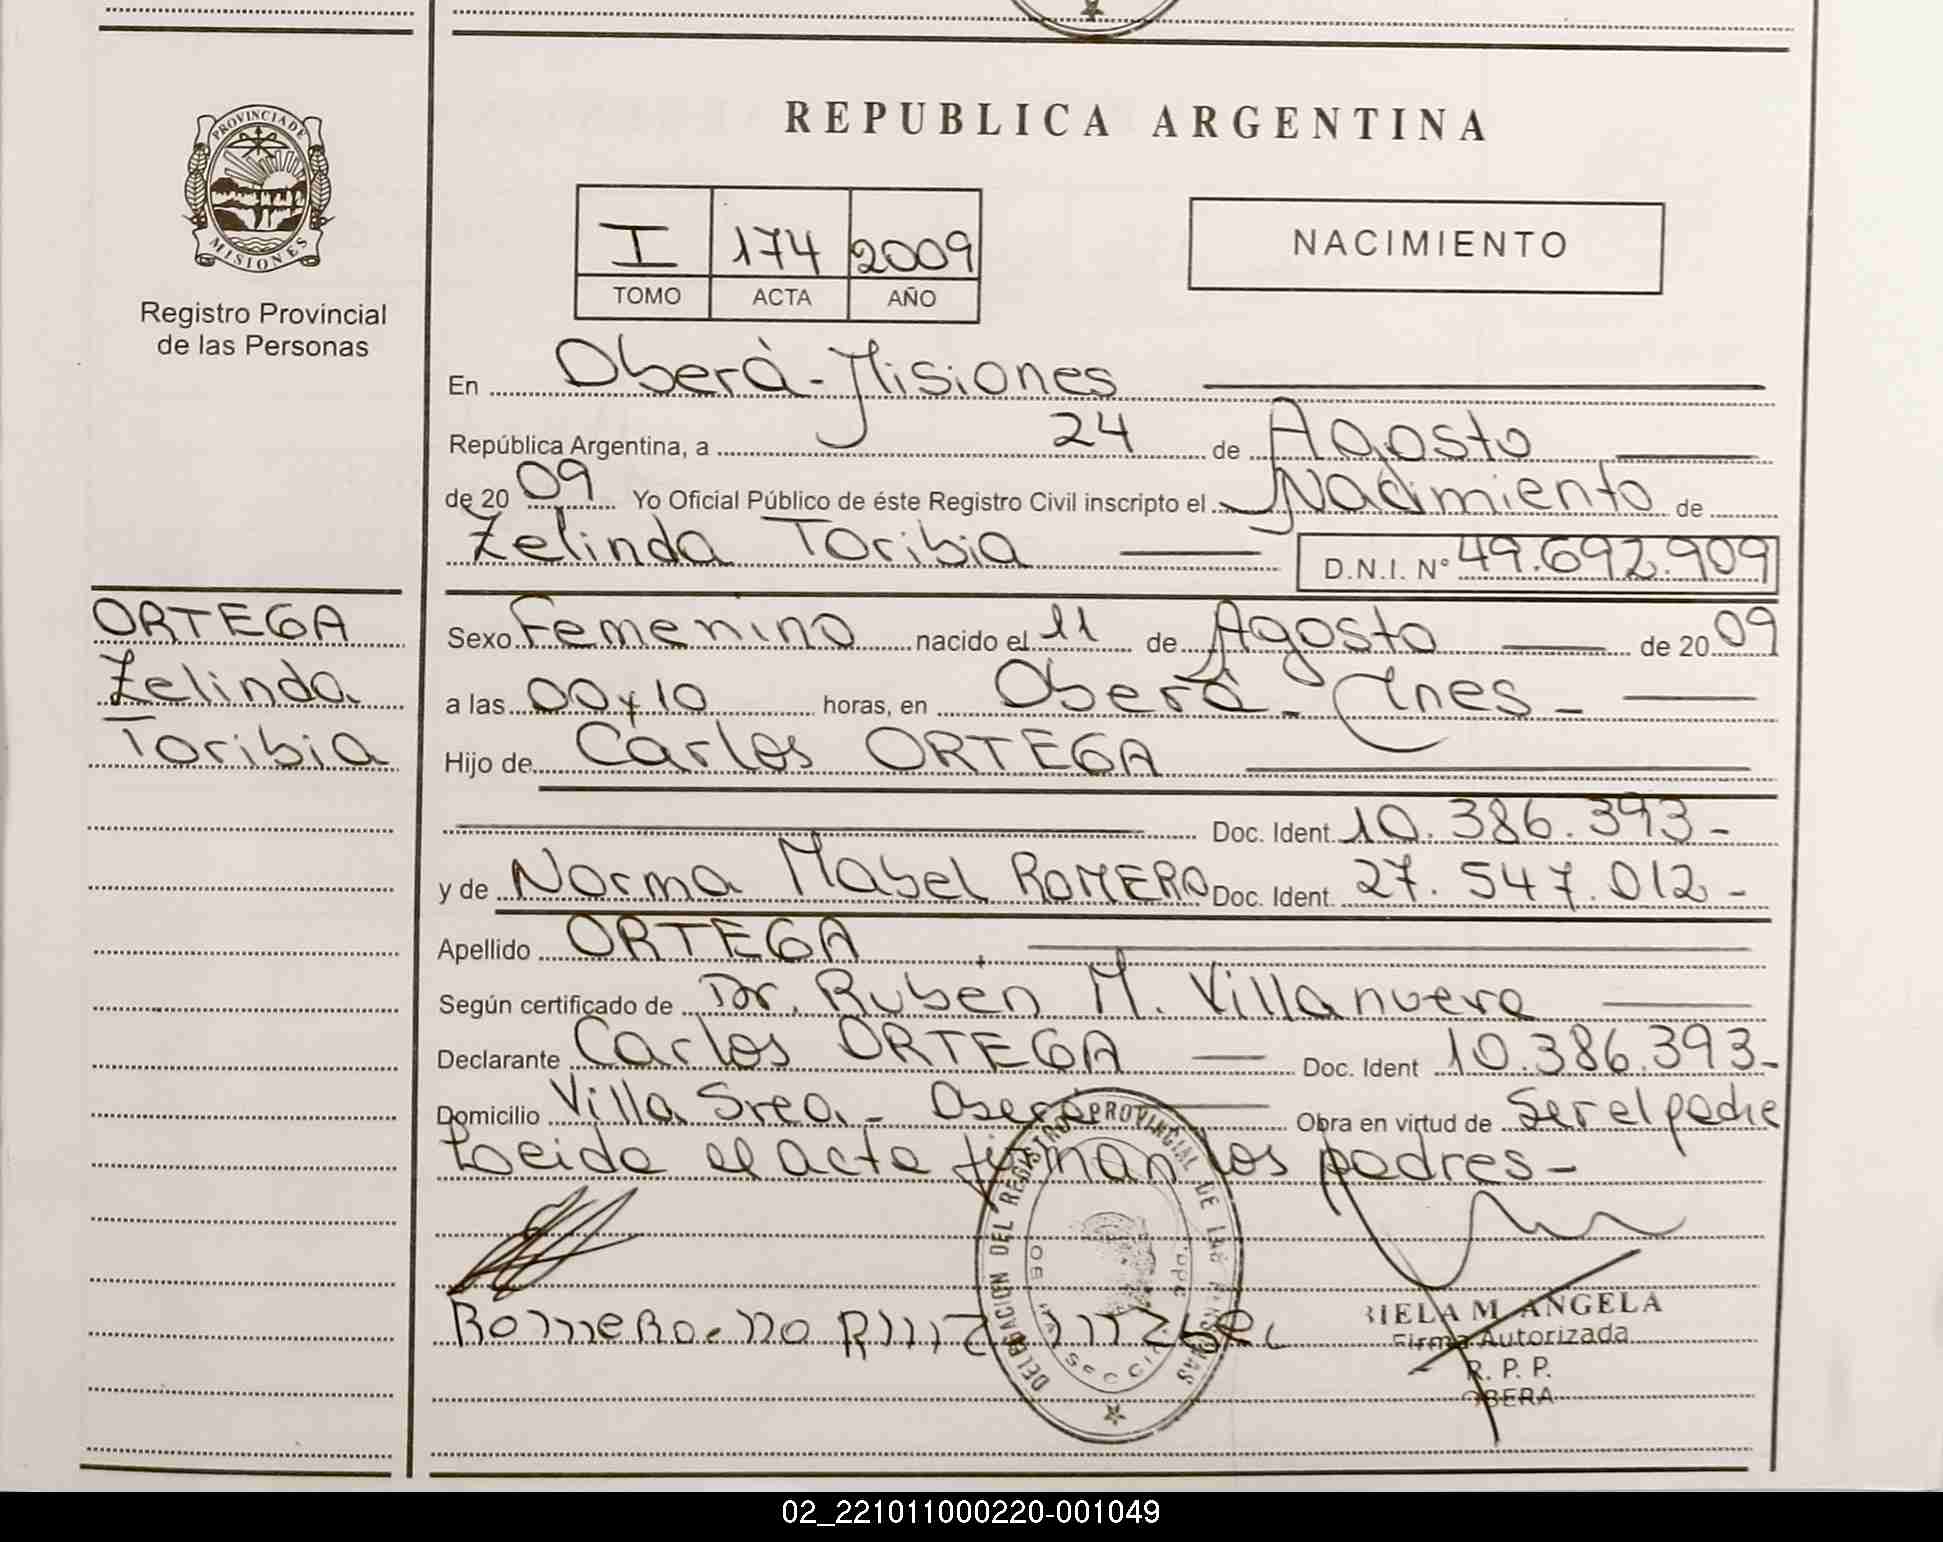 PROVINCIA DE
MISIONES
Registro Provincial
de las Personas
REPUBLICA ARGENTINA
I 174 2009
TOMO ACTA AÑO
NACIMIENTO
En Oberá - Misiones
República Argentina, a 24 de Agosto
de 20 09 Yo Oficial Público de éste Registro Civil inscripto el Nacimiento de
Zelinda Toribia D.N.I. N° 49.692.909
ORTEGA
Zelinda
Toribia
Sexo Femenino nacido el 11 de Agosto de 20 09
a las 00 y 10 horas, en Oberá - Mnes -
Hijo de Carlos ORTEGA
Doc. Ident. 10.386.393-
y de Norma Mabel ROMERO Doc. Ident. 27.547.012-
Apellido ORTEGA
Según certificado de Dr. Rubén M. Villanueva
Declarante Carlos ORTEGA Doc. Ident 10.386.393-
Domicilio Villa - Oberá Obra en virtud de Ser el padre
Leida el acta firman los padres-
DELEGACION DEL REGISTRO PROVINCIAL DE LAS PERSONAS
Romero. no
M. ANGELA
Firma Autorizada
R. P. P.
OBERA
02_221011000220-001049